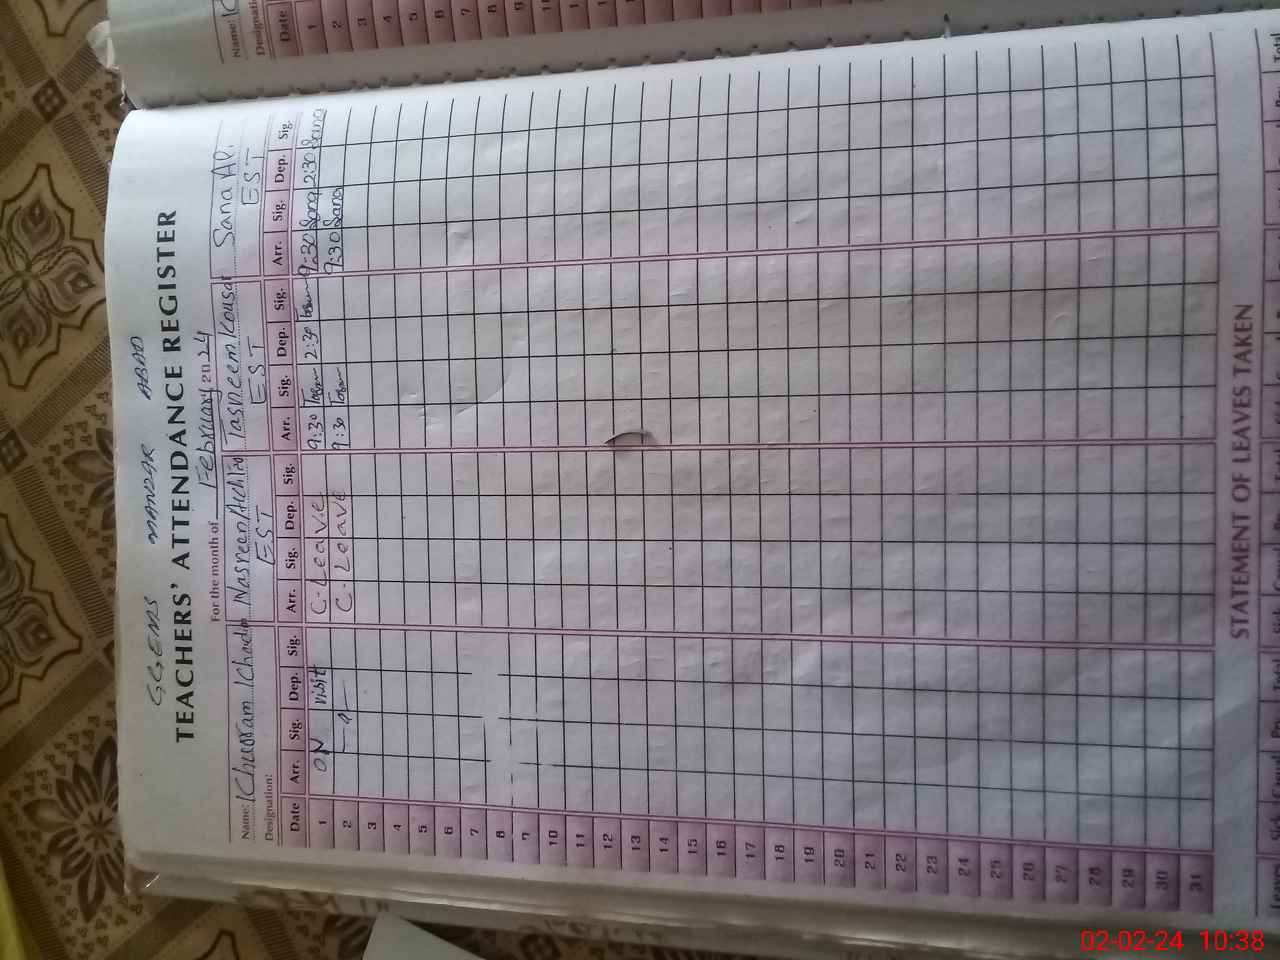 GGEMS MANZAR ABAD
TEACHERS' ATTENDANCE REGISTER
For the month of February 2024
Name: Khurram Khadim Nasreen Akhtar Tasneem Kousar Sana Ali
Designation: EST EST EST
Date Arr. Sig. Dep. Sig. Arr. Sig. Dep. Sig. Arr. Sig. Dep. Sig. Arr. Sig. Dep. Sig.
1 ON visit C-Leave 9:30 2:30 9:30 Sana 2:30 Sana
2 C. Leave 9:30 9:30 Sana
3
4
5
6
7
8
9
10
11
12
13
14
15
16
17
18
19
20
21
22
23
24
25
26
27
28
29
30
31
STATEMENT OF LEAVES TAKEN
Name:
Date
1
2
3
4
5
6
7
8
9
02-02-24 10:38